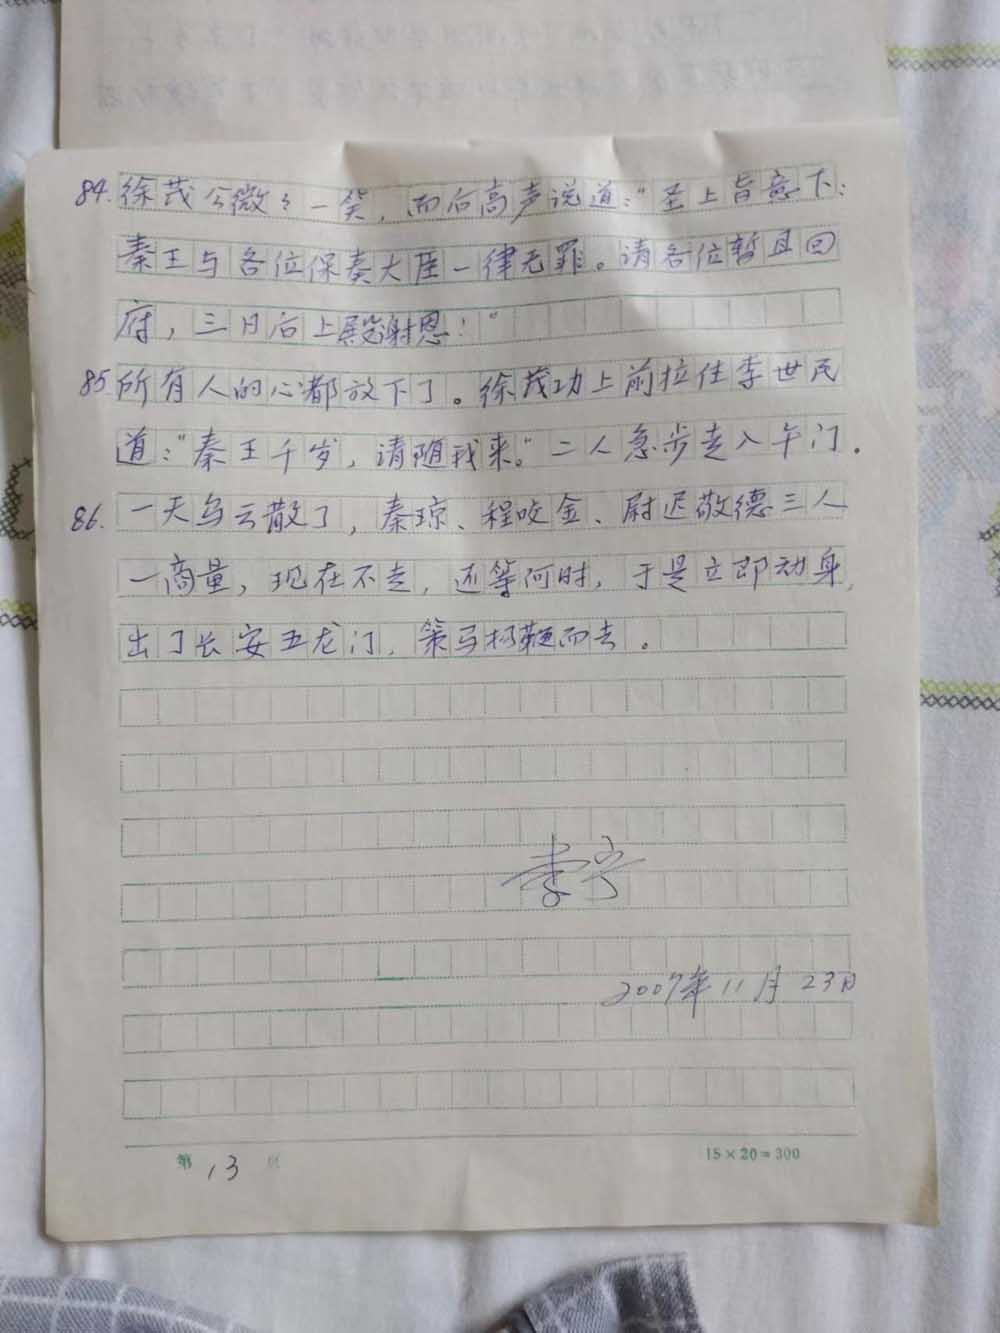 84.徐茂公微々一笑，而后高声说道："圣上旨意下：
秦王与各位保奏大臣一律无罪。请各位暂且回
府，三日后上殿谢恩！"
85所有人的心都放下了。徐茂功上前拉住李世民
道："秦王千岁，请随我来。"二人急步走入午门。
86.一天乌云散了，秦琼、程咬金、尉迟敬德三人
一商量，现在不走，还等何时，于是立即动身，
出了长安五龙门，策马扬鞭而去。
李宁
2007年11月23日
第13页
15×20=300